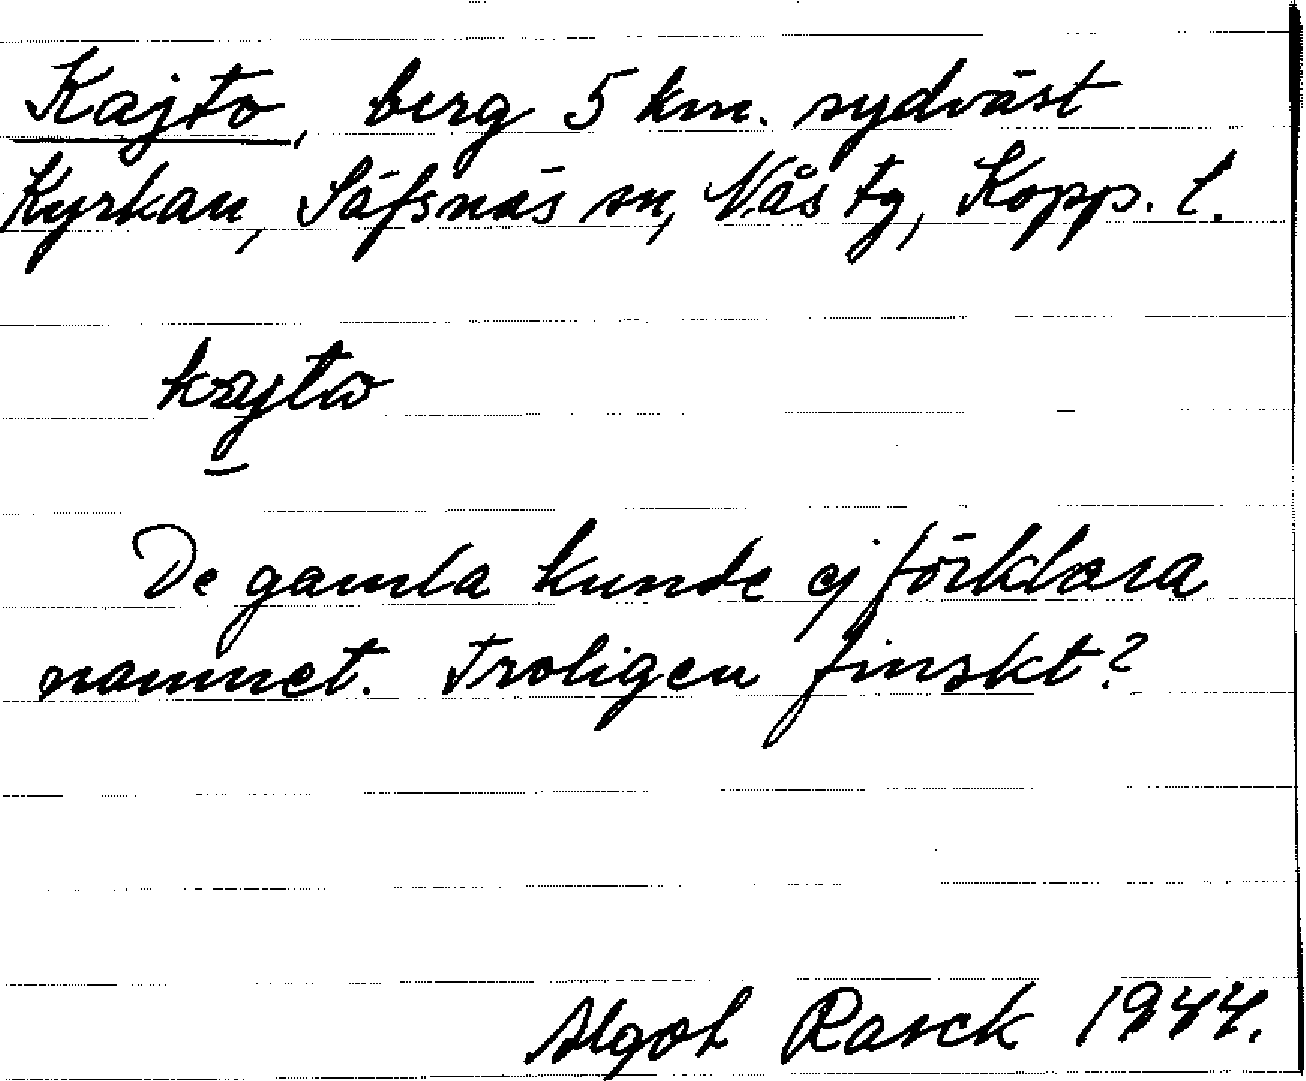 Kajto, berg 5 km. sydväst
Kyrkan, Säfsnäs sn, Nås tg, Kopp. l.
kajtω
De gamla kunde ej förklara
namnet. Troligen finskt?
Algot Rasck 1944.